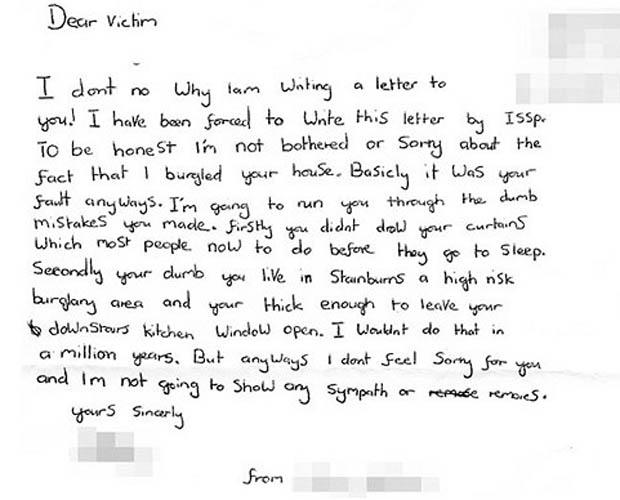 Dear Victim
I dont no Why Iam Writing a letter to
you! I have been forced to Write this letter by ISSP.
To be honest I'm not bothered or Sorry about the
fact that I burgled your house. Basicly it was your
fault anyways. I'm going to run you through the dumb
mistakes you made. firstly you didnt draw your curtains
Which most people now to do before they go to Sleep.
Secondly your dumb you live in Stainburns a high risk
burglary area and your thick enough to leave your
downstairs kitchen Window open. I Wouldnt do that in
a million years. But anyways I dont feel Sorry for you
and Im not going to show any Sympath or remose remoies.
yours Sincerly
from